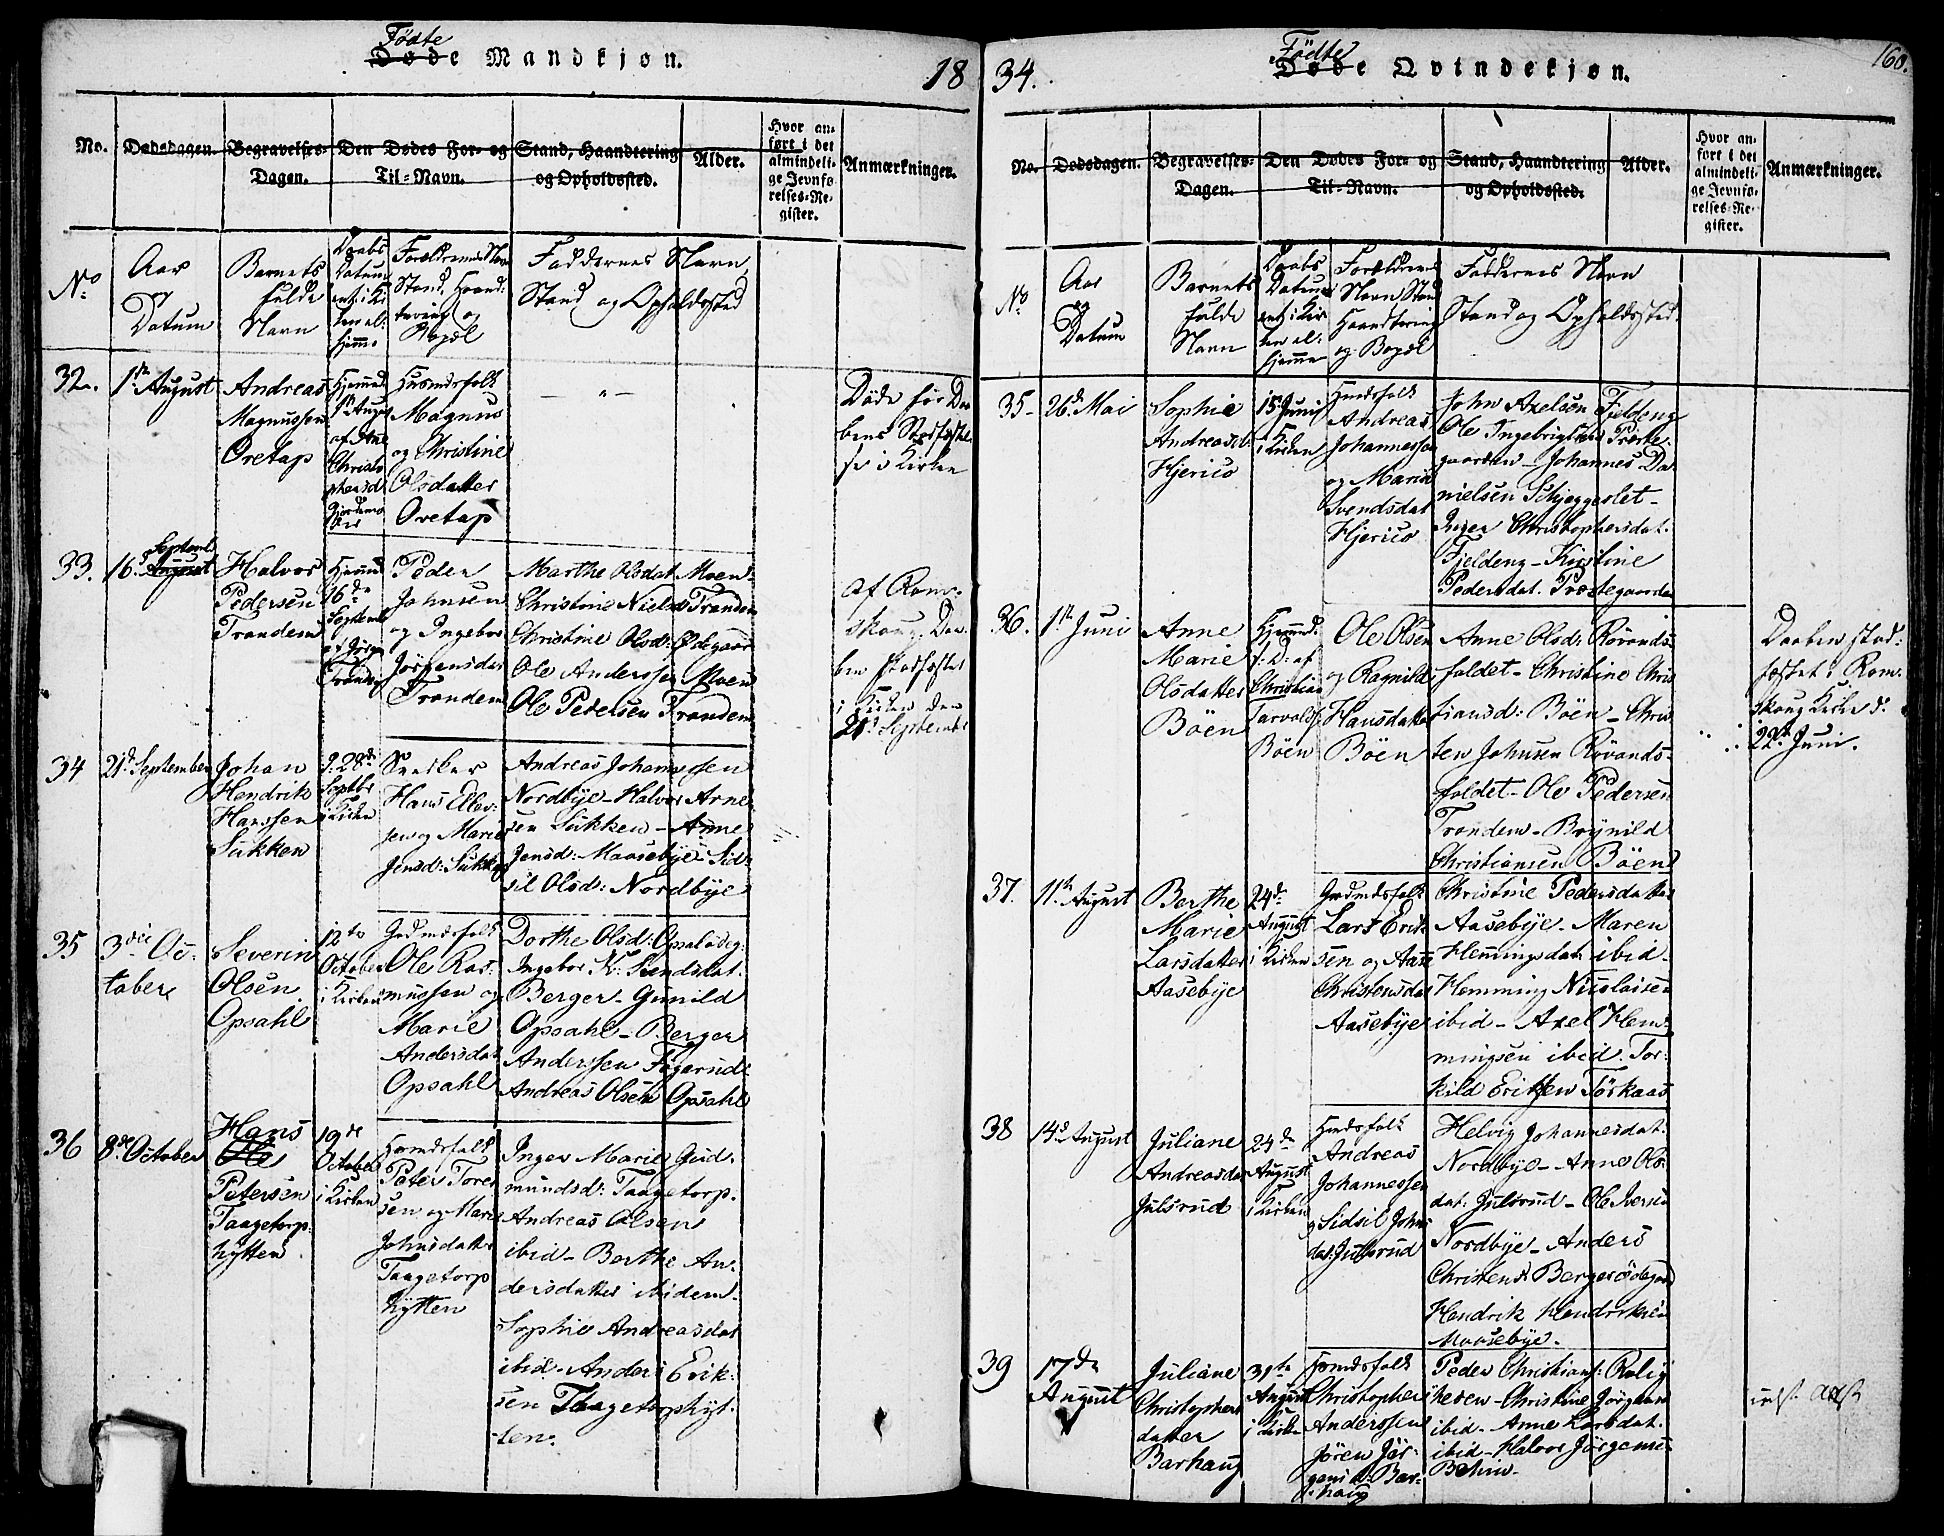 Fødte
Døde Mandkjøn.
18
No.
Dødsdagen.
Begravelses-
Dagen.
Den Dødes For- og
Til-Navn.
Stand, Haandtering
og Opholdssted.
Alder.
Hvor an-
ført i det
almindeli-
ge Jevnfø-
relses-Re-
gister.
Anmærkninger.
No
Aar
og
Datum
Barnets
fulde
Navn
Daabs
Datum
ent i Kir
ken el.
hjemme
Forældrenes Navn
Stand, Haand-
tering og
Bopæl
Faddernes Navn
Stand og Opholdssted
32.
1ste August
Andreas
Magnussen
Oretap
Hjemmed.
1ste August
af Ane
Christo
phersd
Husmdsfolk
Magnus
og Christine
Olsdatter
Oretap
— " —
Døde før Daa
bens Stadfæstel
se i Kirken
33.
16d
Septemb
August
Halvor
Pedersen
Trandem
Hjemmed
16de
Septemb
Peder
Johnsen
og Ingebor
Jørgensdat
Trandem
Marthe Olsdat Moen-
Christine Niels Trandem
Christine Olsd: Ødegaar
Ole Anderssen Moen
Ole Pedersen Trandem
af Rom-
skoug, Daa-
ben stadfæstet
i Kirken den
21de September
34
21d September
Johan
Hendrik
Hanssen
Sukken
D. 28de
Septbr
i Kirken
Hans Ellev-
sen og Marie
Jensd: Sukken
Andreas Johannessen
Nordbye - Halvor Arne
sen Sukken - Anne
Jensd: Maasebye - Sid-
sil Olsd: Nordbye
35
3die Oc-
tober
Severin
Olsen
Opsahl
12te
October
i Kirken
Gaardmdsfolk
Ole Ras-
mussen og
Marie
Andersdat
Opsahl
Dorthe Olsd: Opsalødeg:
Ingebor N: Sundsdat.
Berger - Gunild
Opsahl - Berger
Anderssen Fagerud-
Andreas Olsen Opsahl
36
8de October
Hans
Ole
Petersen
Taagetorp-
hytten
19de
October
i Kirken
Husmdsfolk
Peter Tores
sen og Marie
Johnsdatter
Taagetorp
hytten
Inger Marie Gud-
mundsd: Taagetorp.
Andreas Olsen
ibid - Berthe An-
dersdatter ibidem.
Sophie Andreasdat
ibid - Anders Erik-
sen Taagetorphyt-
ten.
34.
Fødte
Døde Qvindekjøn.
160.
No.
Dødsdagen.
Begravelses-
Dagen.
Den Dødes For- og
Til-Navn.
Stand, Haandtering
og Opholdssted.
Alder.
Hvor an-
ført i det
almindeli-
ge Jevnfø-
relses-Re-
gister.
Anmærkninger.
No
Aar
og
Datum
Barnets
fulde
Navn
Daabs
Datum
ent i Kir
ken el.
hjemme
Forældrenes
Navn Stand
Haandtering
og Bopæl
Faddernes Navn
Stand og Opholdssted.
35-
26d Mai
Sophie
Andreasd:
Hjerico
15 Juni
i Kirken
Husmdsfolk
Andreas
Johannessen
og Maria
Svendsdat
Hjerico
John Axelsen Fjeldeng
Ole Ingebrigtsen Præste-
gaarden - Johannes Da
nielsen Skjeggerlet-
Inger Christophersdat.
Fjeldeng - Kirstine
Pedersdat. Præstegaarden
36.
1ste Juni
Anne
Marie
Olsdatter
Böen
Hjemmed:
f: D: af
Christian
Tarvalds
Böen
Ole Olsen
og Ragnild
Hansdatter
Böen
Anne Olsd: Rövands-
foldet - Christine Chris
tiansd: Böen - Chris
ten Johnsen Rövands-
foldet - Ole Pedersen
Trandem - Brynild
Christiansen Böen
Daaben stad-
fæstet i Rom-
skoug Kirke d.
22de Juni.
37.
11te August
Berthe
Marie
Larsdatter
Aasebye
24de
August
i Kirken
Gaardmdsfolk
Lars Erik-
sen og Aase
Christensdat
Aasebye
Christine Pedersdatter
Aasebye - Maren
Hemmingsdat ibid-
Hemming Nicolaisen
ibid - Axel Hem-
mingsen ibid. Tor-
kild Eriksen Törkaas
38
14d August
Juliane
Andreasda
Julsrud
24de
August
i Kirken
Husmdsfolk
Andreas
Johannessen
og Sidsil Johns
dat. Julsrud
Helvig Johannesdat.
Nordbye - Anne Ols-
dat. Julsrud - Ole Iversen
Nordbye - Anders
Christens Bergerødegaard
Hendrik Hendriksen
Maasebye.
39
17de
August
Juliane
Christophers
datter
Barhaug
31te
August
i Kirken
Husmdsfolk
Christopher
Anderssen
Jøren Jør-
gensd: Bar-
haug
Peder Christians: Rolig
heden - Christine Jørgens
ibid - Anne Larsdat.
ibid - Halvor Jørgens